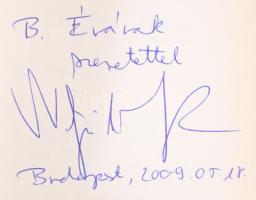 B. Évának
szeretettel
Budapest, 2009.05.18.